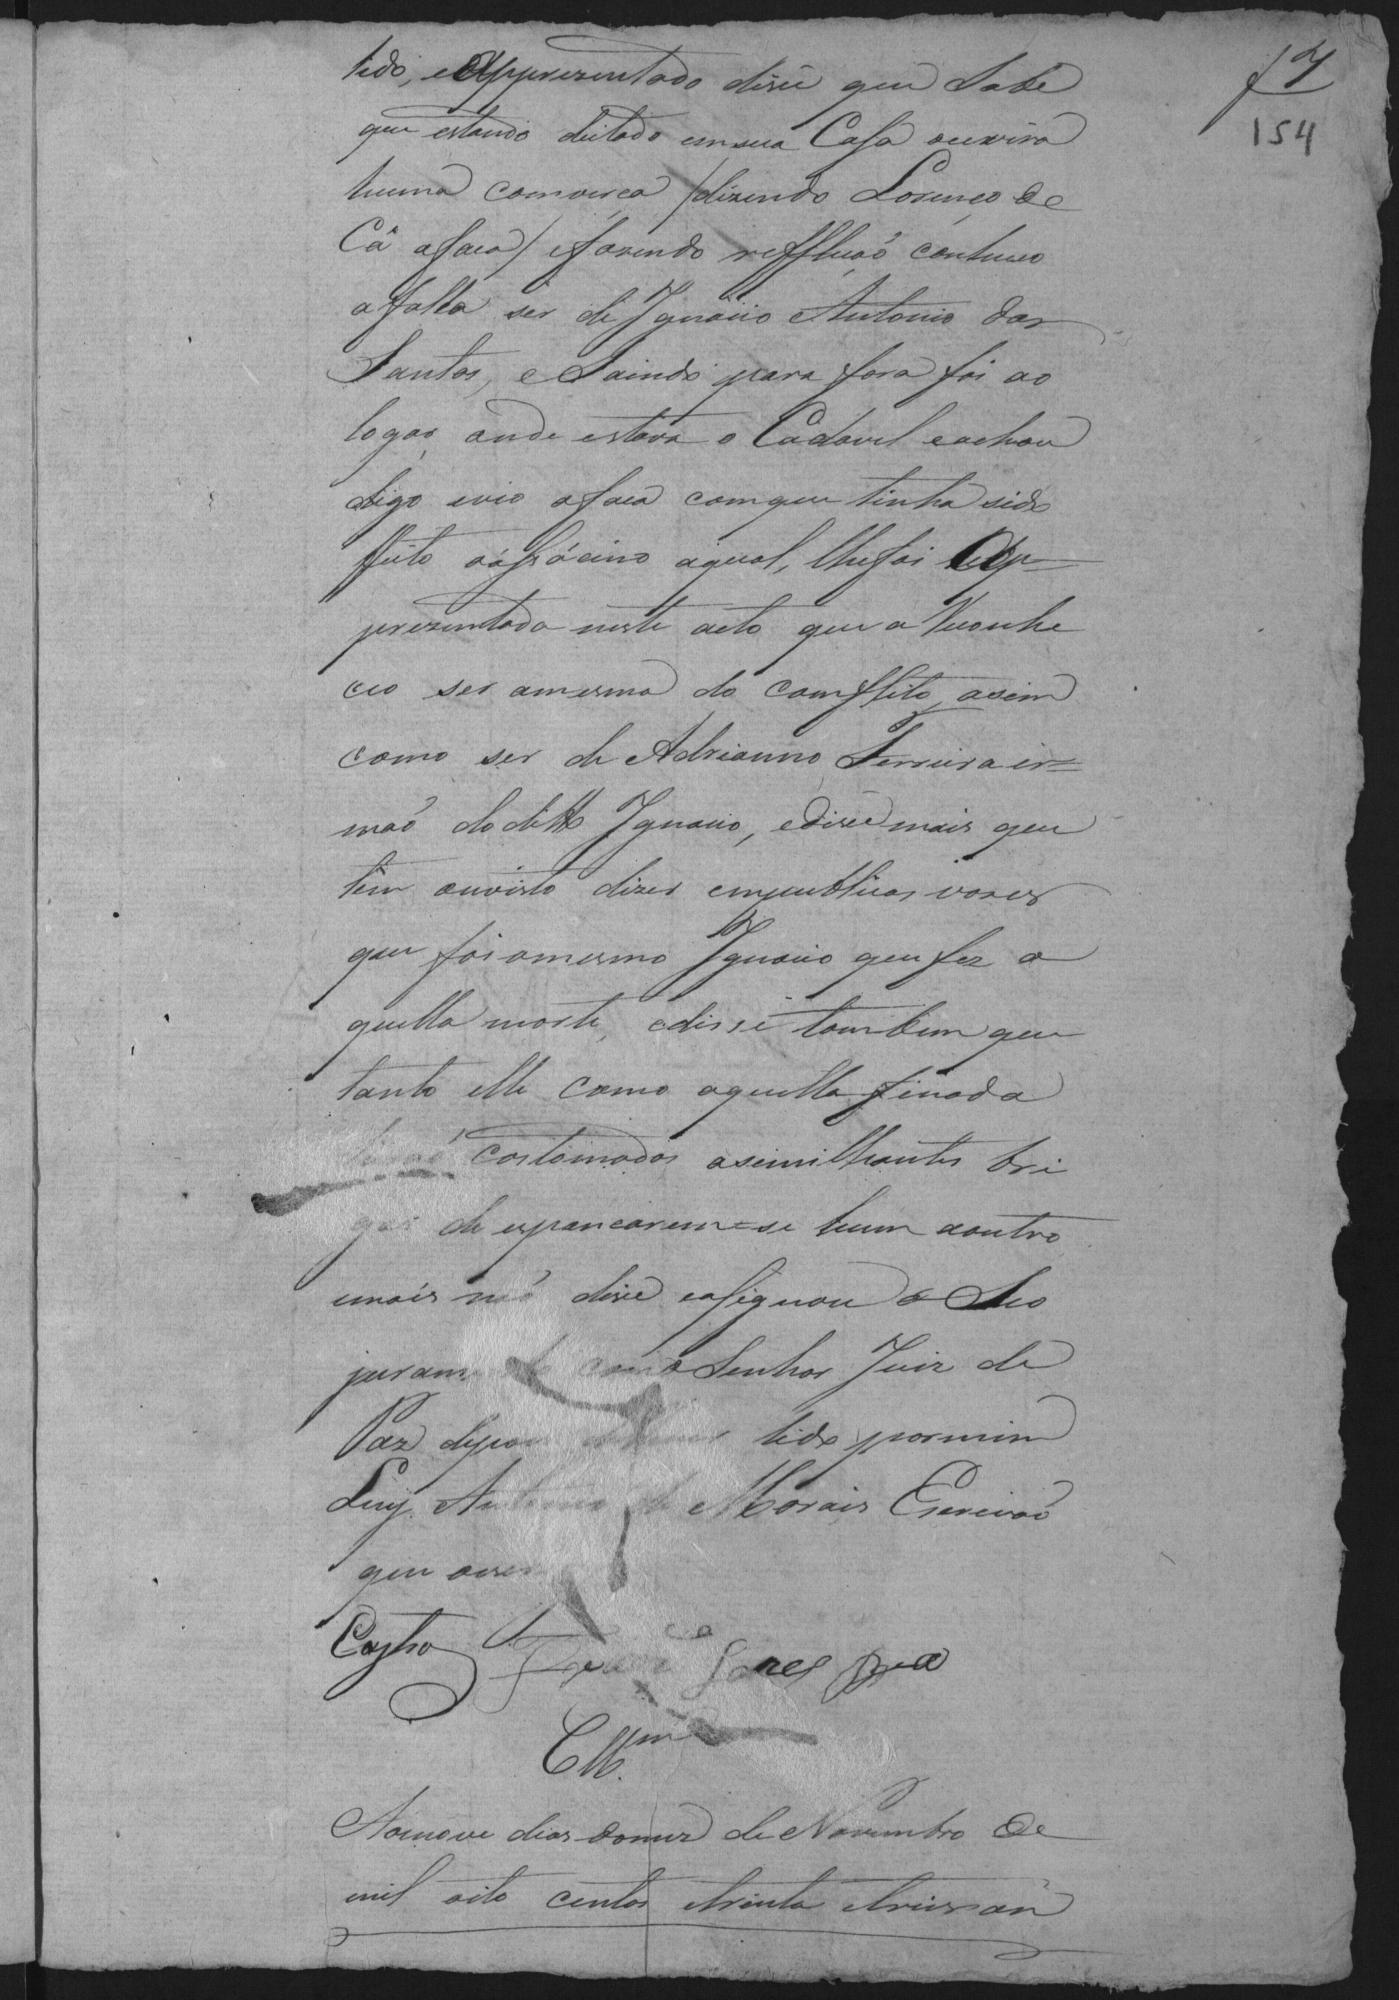 f 7
154
tido, e Apprezentado dise que Sabe
que estando deitado em sua Casa ouvira
huma comverca /dizendo Lorenço de
Cá a faca/ e fazendo refflecçaó conheceo
a falla ser de Ignacio Antonio dos
Santos, e Saindo para fora foi ao
logar, onde estava o Cadavel e achou
digo e vio a faca com que tinha sido
ffeito o aſsacino a qual, lhe foi Ap=
prezentada neste acto que a Reconhe
ceo ser a mesma do comfflito, asim
como ser de Adrianno Ferreira ir=
maõ do ditto Ignacio, e dise mais que
tem ouvisto dizer em publicas vozes
que foi o mesmo Ignacio que fez a
quella morte, e disse tambem que
tanto elle como aquella finada
costomados a similhantes bri
gas de espancarem=se hum a outro
e mais naõ dise e aſignou o Seo
juram to com o Senhor Juiz de
Paz depois lido por mim
Luiz Antonio de Morais Escrivaõ
que oescr
Castro
Gomes
Cllm.
Aos nove dias do mez de Novembro de
mil oito centos e trinta e treis an